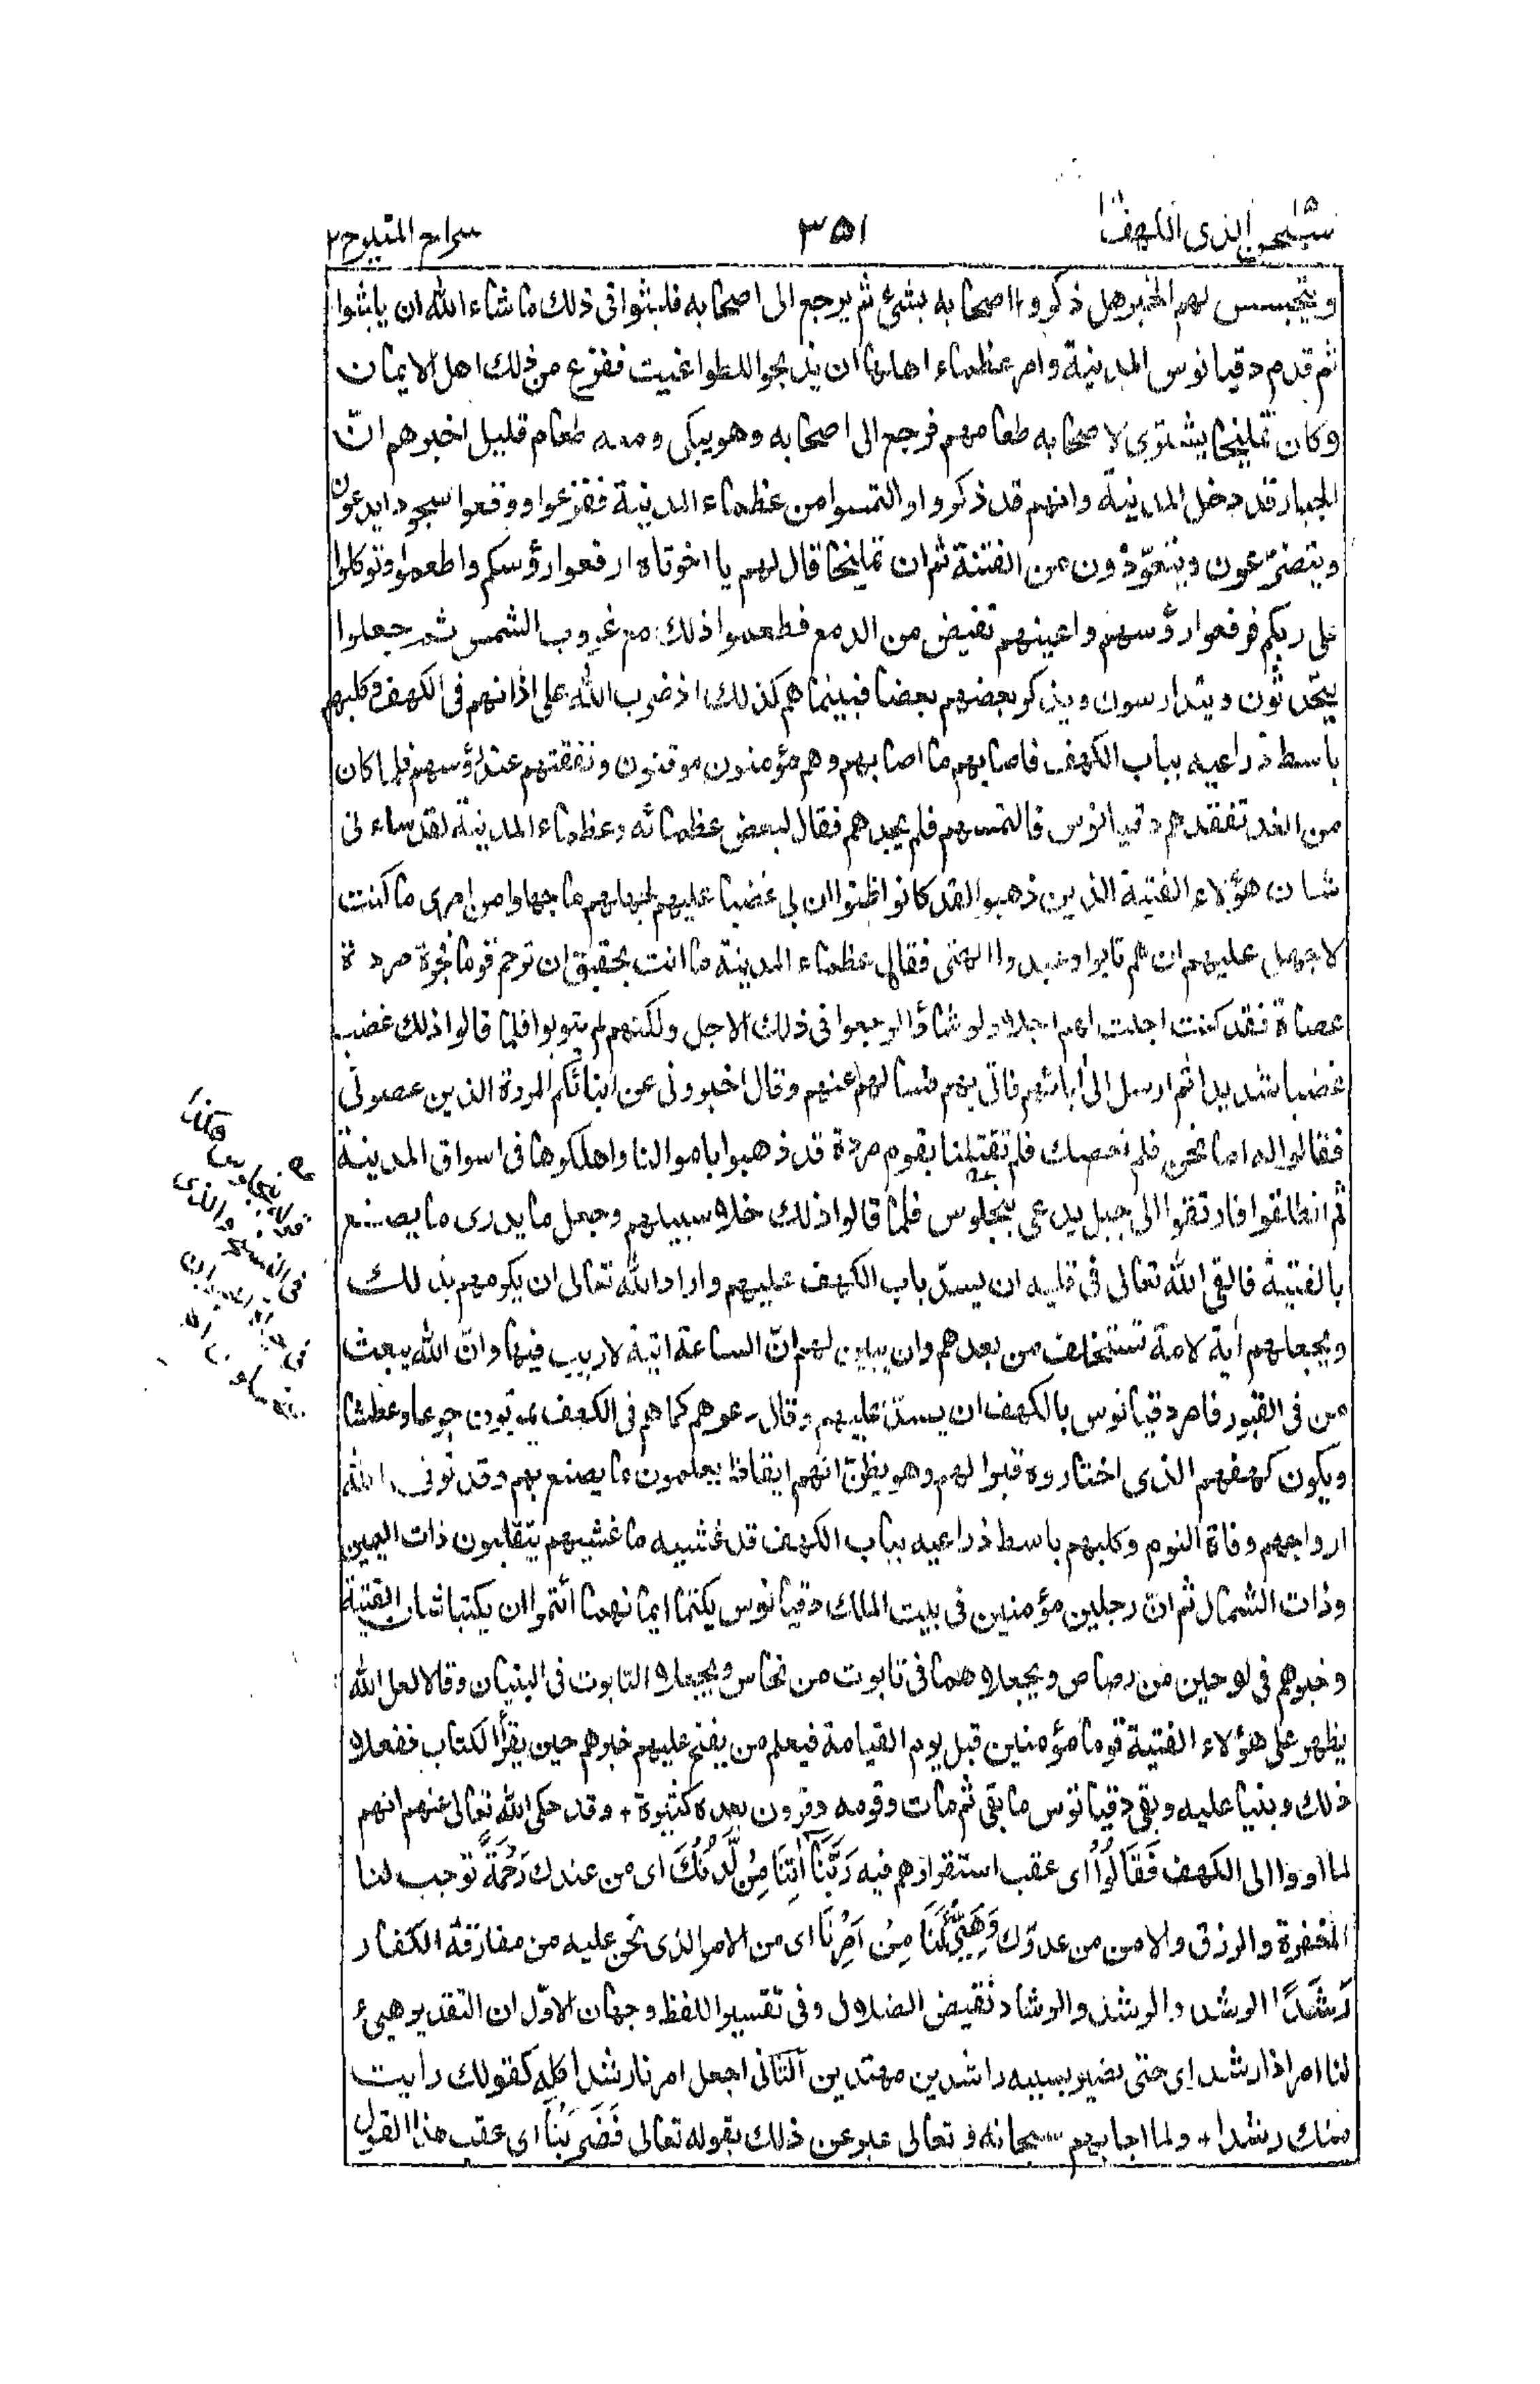 سبحن الذى ١٥ الكهف
٣٥١
سراج المنير ج٢
ويتجسس لهم الخبر هل ذكروا اصحابه بشئ ثم يرجع الى اصحابه فلبثوا فى ذلك ما شاء الله ان يلبثوا
ثم قدم دقيانوس المدينة وامر عظماء اهلها ان يذبحوا للطواغيت ففزع من ذلك اهل الايمان
وكان تمليخا يشترى لاصحابه طعامهم فرجع الى اصحابه وهو يبكى ومعه طعام قليل اخبرهم انّ
الجبار قد دخل المدينة وانهم قد ذكروا والتمسوا من عظماء المدينة ففزعوا ووقعوا سجودا يدعون
ويتضرّعون ويتعوّذون من الفتنة ثم ان تمليخا قال لهم يا اخوتاه ارفعوا رؤسكم واطعموا وتوكلوا
على ربكم فرفعوا رؤسهم واعينهم تفيض من الدمع فطعموا ذلك مع غروب الشمس ثم جعلوا
يتحدّثون ويتدارسون ويذكر بعضهم بعضا فبينما هم كذلك اذ ضرب الله على اذانهم فى الكهف وكلبهم
باسط ذراعيه بباب الكهف فاصابهم ما اصابهم وهم مؤمنون موقنون ونفقتهم عند رؤسهم فلما كان
من الغد تفقدهم دقيانوس فالتمسهم فلم يجدهم فقال لبعض عظمائه وعظماء المدينة لقد ساءنى
شان هؤلاء الفتية الذين ذهبوا لقد كانوا ظنوا ان لى غضبا عليهم لجهلهم ما جهلوا من امرى ما كنت
لاجهل عليهم ان هم تابوا وعبدوا الهتى فقال عظماء المدينة ما انت بحقيق ان ترحم قوما فجرة مردة
عصاة فقد كنت اجلت لهم اجلا ولو شاؤا لرجعوا فى ذلك الاجل ولكنهم لم يتوبوا فلما قالوا ذلك غضب
غضبا شديدا ثم ارسل الى ابائهم فاتى بهم فسالهم عنهم وقال اخبرونى عن ابنائكم المردة الذين عصونى
فقالوا له اما نحن فلم نعصك فلم تقتلنا بقوم مردة قد ذهبوا باموالنا واهلكوها فى اسواق المدينة
ثم انطلقوا فارتقوا الى جبل يدعى بنجلوس فلما قالوا ذلك خلا سبيلهم وجعل ما يدرى ما يصنع
بالفتية فالقى الله تعالى فى قلبه ان يسدّ باب الكهف عليهم واراد الله تعالى ان يكرمهم بذلك
ويجعلهم اٰية لامة تستخلف من بعدهم وان يبين لهم انّ الساعة اتية لا ريب فيها وانّ الله يبعث
من فى القبور فامر دقيانوس بالكهف ان يسدّ عليهم وقال دعوهم كما هم فى الكهف يموتون جوعا وعطشا
ويكون كهفهم الذى اختاروه قبرا لهم وهو يظنّ انهم ايقاظ يعلمون ما يصنع بهم وقد توفى الله
ارواحهم وفاة النوم وكلبهم باسط ذراعيه بباب الكهف قد غشيه ما غشيهم يتقلبون ذات اليمين
وذات الشمال ثم انّ رجلين مؤمنين فى بيت الملك دقيانوس يكتما ايمانهما ائتموا ان يكتبا شان الفتية
وخبرهم فى لوحين من رصاص ويجعلاهما فى تابوت من نحاس ويجعلا التابوت فى البنيان وقالا لعل الله
يظهر على هؤلاء الفتية قوما مؤمنين قبل يوم القيامة فيعلم من يفتح عليهم خبرهم حين يقرأ الكتاب ففعلا
ذلك وبنيا عليه وبقى دقيانوس ما بقى ثم مات وقومه وقرون بعده كثيرة + وقد حكى الله تعالى عنهم انهم
لما اووا الى الكهف فَقَالُوْا اى عقب استقرارهم فيه رَبَّنَآ اٰتِنَا مِنْ لَّدُنْكَ اى من عندك رَحْمَةً توجب لنا
المغفرة والرزق والامن من عدوّك وَهَيِّئْ لَنَا مِنْ اَمْرِنَا اى من الامر الذى نحن عليه من مفارقة الكفار
رَشَدًا الرشد والرشد والرشاد نقيض الضلال وفى تفسير اللفظ وجهان الاوّل ان التقدير هيئ
لنا امرا ذا رشد اى حتى نصير بسببه راشدين مهتدين الثانى اجعل امرنا رشدا كله كقولك رايت
منك رشدا + ولما اجابهم سبحانه وتعالى عبر عن ذلك بقوله تعالى فَضَرَبْنَا اى عقب هذا القول